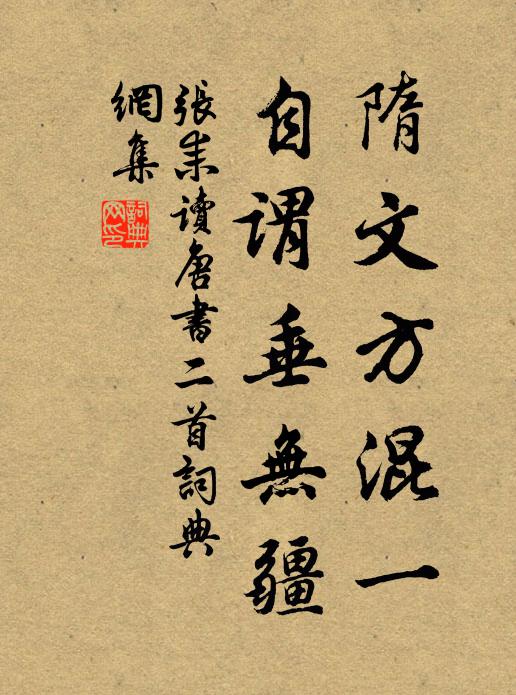 隋文方混一
自謂垂無疆
張耒讀唐書二首詞典
網集
詞典網印